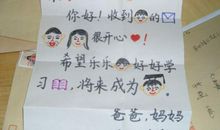 你好！收到的
很开心！
希望乐乐好好学
习，将来成为。
爸爸、妈妈